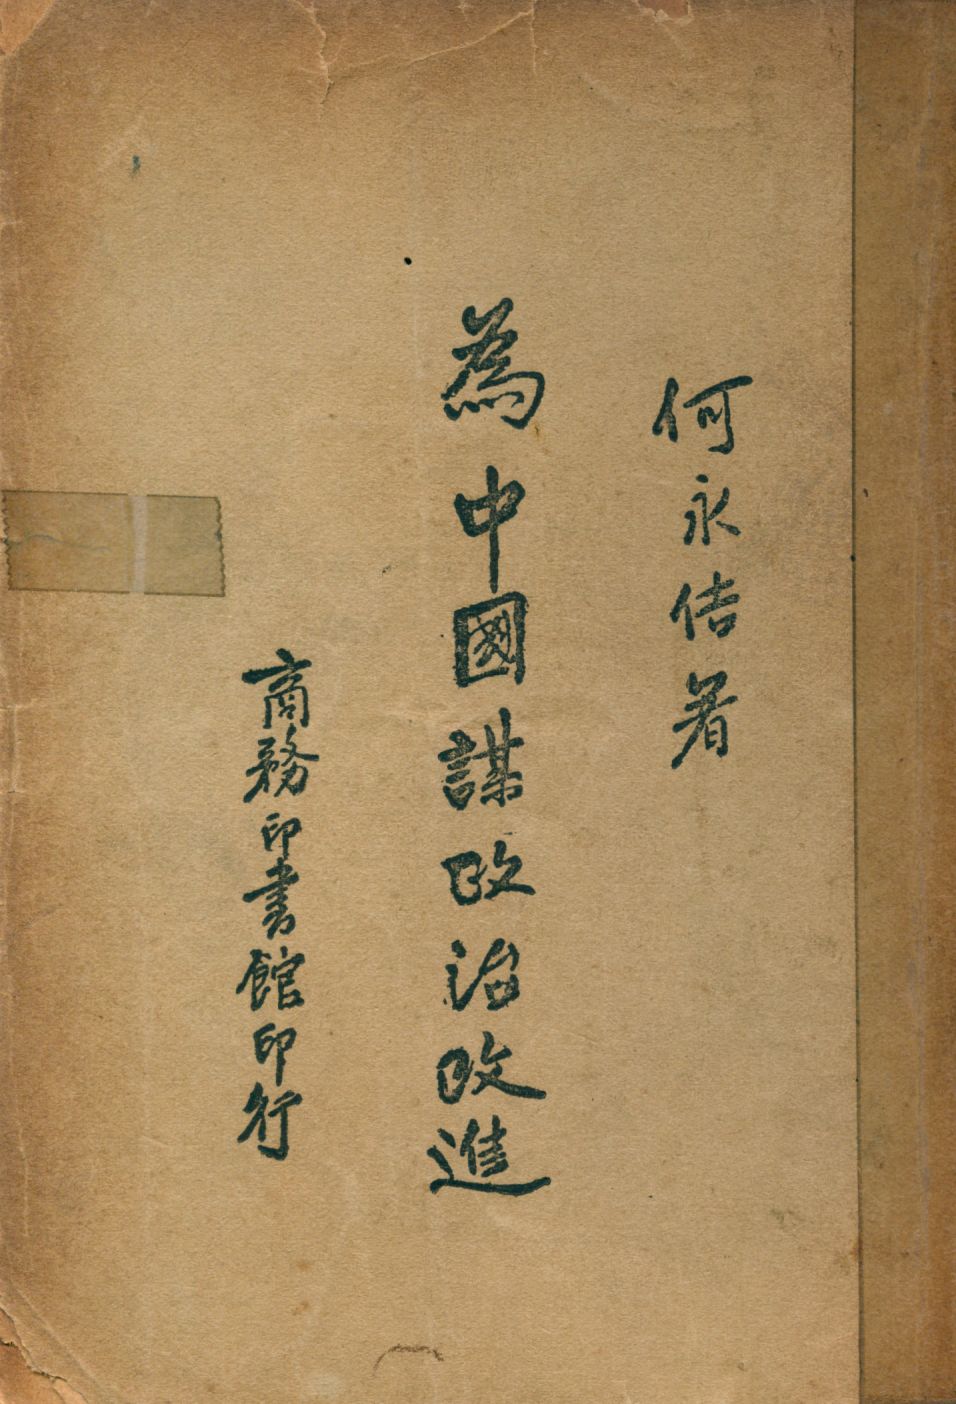 何永佶著
為中國謀政治改進
商務印書館印行